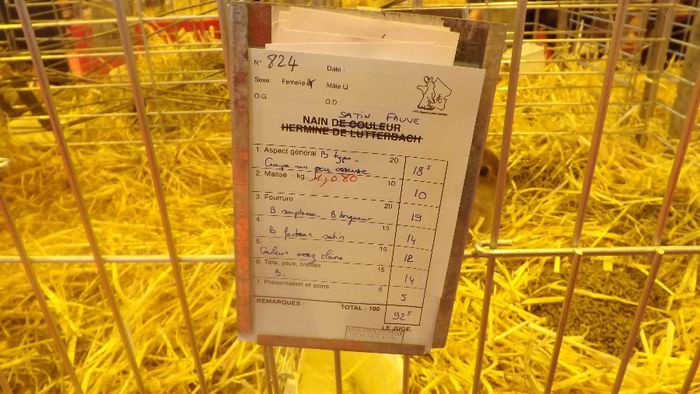 N° 824 Date :
Sexe Femelle Mâle
O.G. O.D.
SATIN FAUVE
NAIN DE COULEUR
HERMINE DE LUTTERBACH
1. Aspect général B type - 20 18 5
Croupe un peu osseuse
2. Masse - kg 0.80 10 10
3. Fourrure 20 19
B souplesse B longueur
4. 15 14
B facteur satin
5. 15 12
Couleur assez claire
6. Tête, yeux, oreilles 15 14
B.
7. Présentation et soins 5 5
REMARQUES : TOTAL : 100 92 5
LE JUGE,